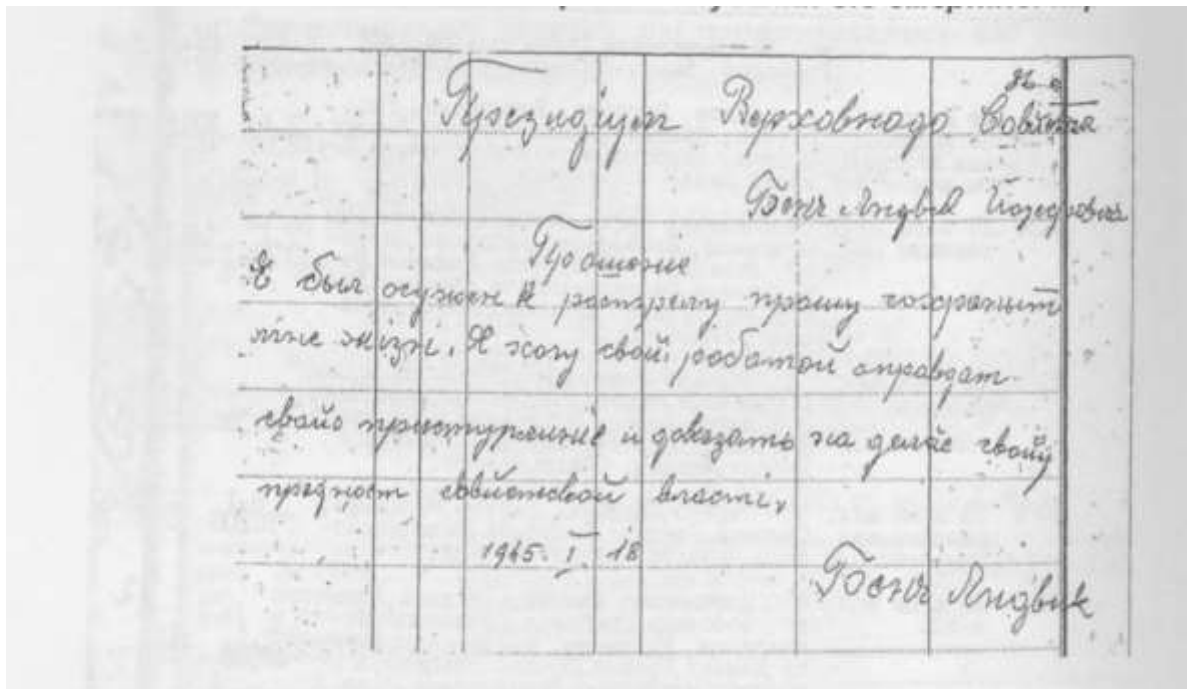 Президіум Верховнодо Совйета
Бенч Людвік Йозефович
Прошение
Я был осужен к розтрелу прошу сохраныт
міне жізні. Я хочу свой роботой оправдат
свойо приступление и доказать на делае свойу
преданост совйетской власті,
1945. I. 18
Людвик